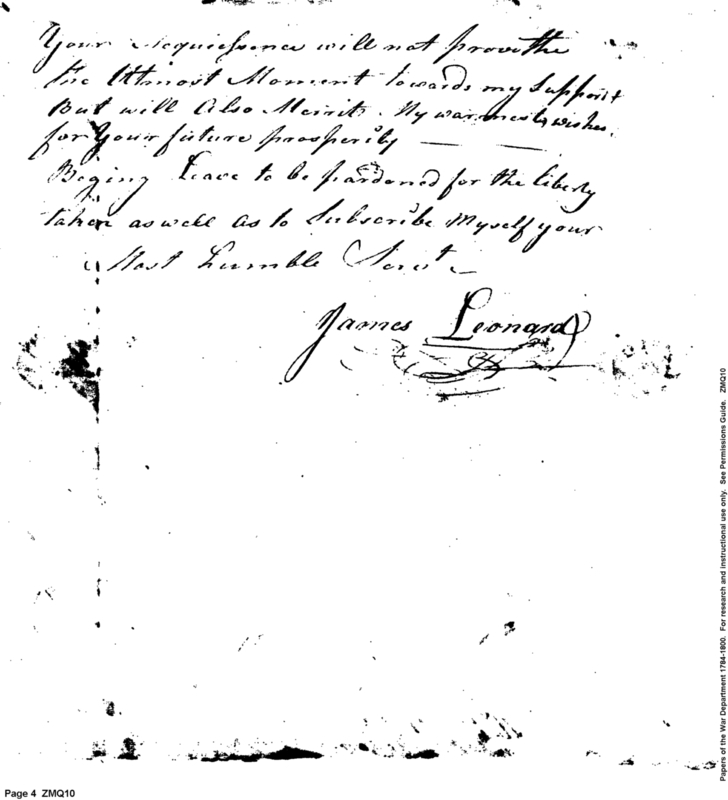 Your Acquiessence will not prove the
the Utmost Moment towards my Support
But will Also Merritt My warmest wishes
for Your future prosperity —— ——
Beging Leave to be pardoned for the liberty
taken as well as to Subscribe Myself your
Most Humble Servt
James Leonard
Page 4 ZMQ10
Papers of the War Department 1784-1800. For research and instructional use only. See Permissions Guide. ZMQ10